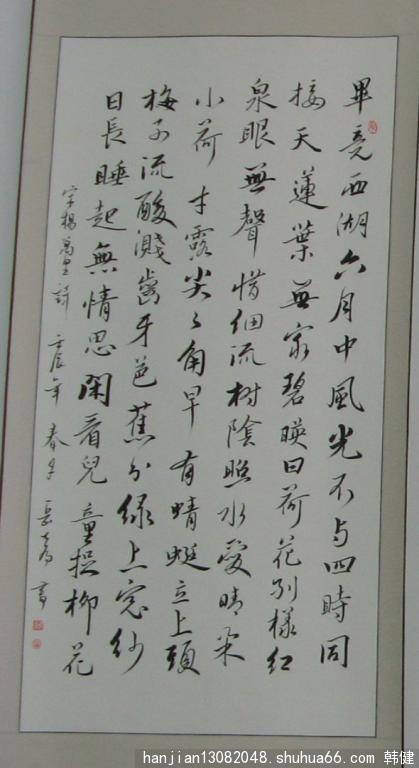 畢竟西湖六月中風光不与四時同
接天蓮葉無窮碧暎日荷花别樣红
泉眼無聲惜细流树陰照水愛晴柔
小荷才露尖々角早有蜻蜓立上頭
梅子流酸濺齒牙芭蕉分緑上窓紗
日長睡起無情思閑看兒童捉柳花
宋楊萬里詩 壬辰年春 書
hanjian13082048.shuhua66.com/韩健